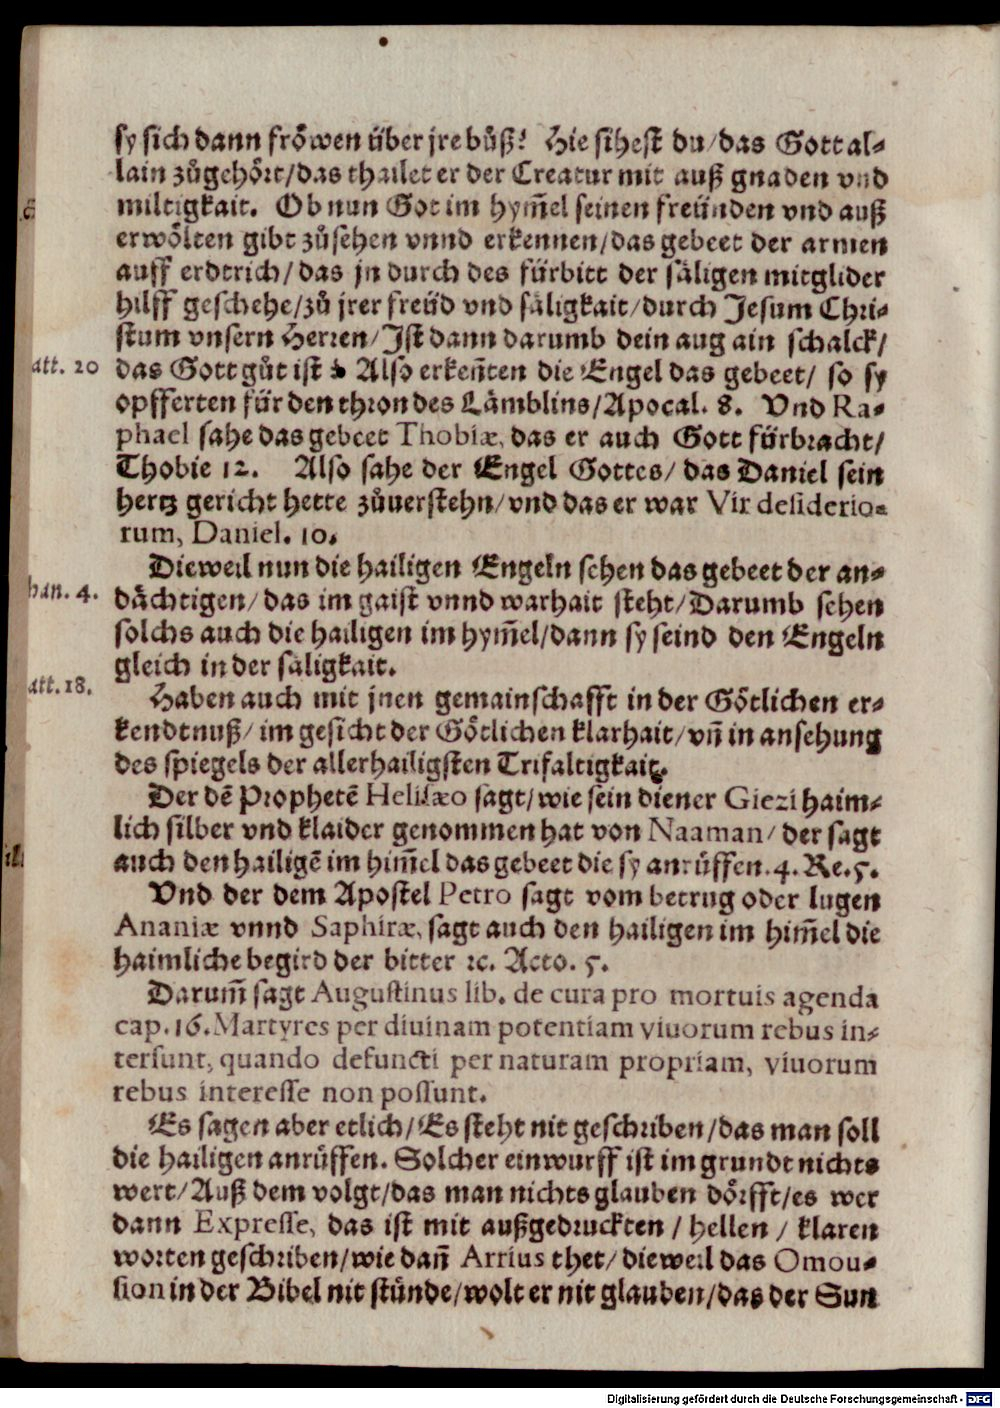 sy sich dann frőwen über jre bůß? Hie sihest du/das Gott al-
lain zůgehőrt/das thailet er der Creatur mit auß gnaden vnd
miltigkait. Ob nun Got im hym̃el seinen freünden vnd auß
erwőlten gibt zůsehen vnnd erkennen/das gebeet der armen
auff erdtrich/das jn durch des fürbitt der säligen mitglider
hilff geschehe/zů jrer freüd vnd säligkait/durch Jesum Chri-
stum vnsern Herren/Ist dann darumb dein aug ain schalck/
att. 20
das Gott gůt ist? Also erkeñten die Engel das gebeet/ so sy
opfferten für den thron des Lämblins/Apocal. 8. Vnd Ra-
phael sahe das gebeet Thobiæ, das er auch Gott fürbracht/
Thobie 12. Also sahe der Engel Gottes/ das Daniel sein
hertz gericht hette zůuerstehn/vnd das er war Vir desiderio-
rum, Daniel. 10.
Dieweil nun die hailigen Engeln sehen das gebeet der an-
han. 4.
dächtigen/das im gaist vnnd warhait steht/Darumb sehen
solchs auch die hailigen im hym̃el/dann sy seind den Engeln
gleich in der säligkait.
att. 18.
Haben auch mit jnen gemainschafft in der Gőtlichen er-
kendtnuß/im gesicht der Gőtlichen klarhait/vñ in ansehung
des spiegels der allerhailigsten Trifaltigkait.
Der dẽ Prophetẽ Helisæo sagt/wie sein diener Giezi haim-
lich silber vnd klaider genommen hat von Naaman/ der sagt
auch den hailigẽ im him̃el das gebeet die sy anrüffen. 4. Re. 5.
Vnd der dem Apostel Petro sagt vom betrug oder lugen
Ananiæ vnnd Saphiræ, sagt auch den hailigen im him̃el die
haimliche begird der bitter ꝛc. Acto. 5.
Darum̃ sagt Augustinus lib. de cura pro mortuis agenda
cap. 16. Martyres per diuinam potentiam viuorum rebus in-
tersunt, quando defuncti per naturam propriam, viuorum
rebus interesse non possunt.
Es sagen aber etlich/Es steht nit geschriben/das man soll
die hailigen anrüffen. Solcher einwurff ist im grundt nichts
wert/Auß dem volgt/das man nichts glauben dőrfft/es wer
dann Expresse, das ist mit außgedruckten/hellen/klaren
worten geschriben/wie dañ Arrius thet/dieweil das Omou-
sion in der Bibel nit stünde/wolt er nit glauben/das der Sun
Digitalisierung gefördert durch die Deutsche Forschungsgemeinschaft - DFG